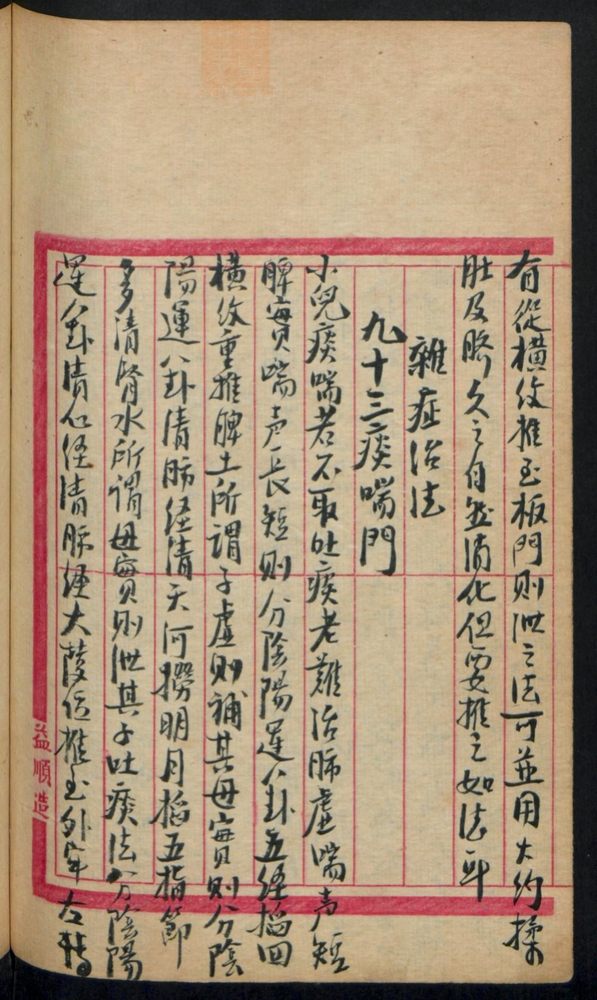 有從橫纹推至板門則泄之法可並用大约揉
肚及臍久之自然消化但要推之如法耳
雜症治法
九十三痰喘門
小兒痰喘若不取吐痰老難治肺虛喘声短
脾實喘声長短則分陰陽運八卦五经掐四
橫纹重推脾土所謂子虛則補其母實則分陰
陽運八卦清肺经清天河撈明月掐五指節
多清腎水所謂母實則泄其子吐痰法分陰陽
運八卦清心经清肺經大陵位推至外牢右轉
益順造